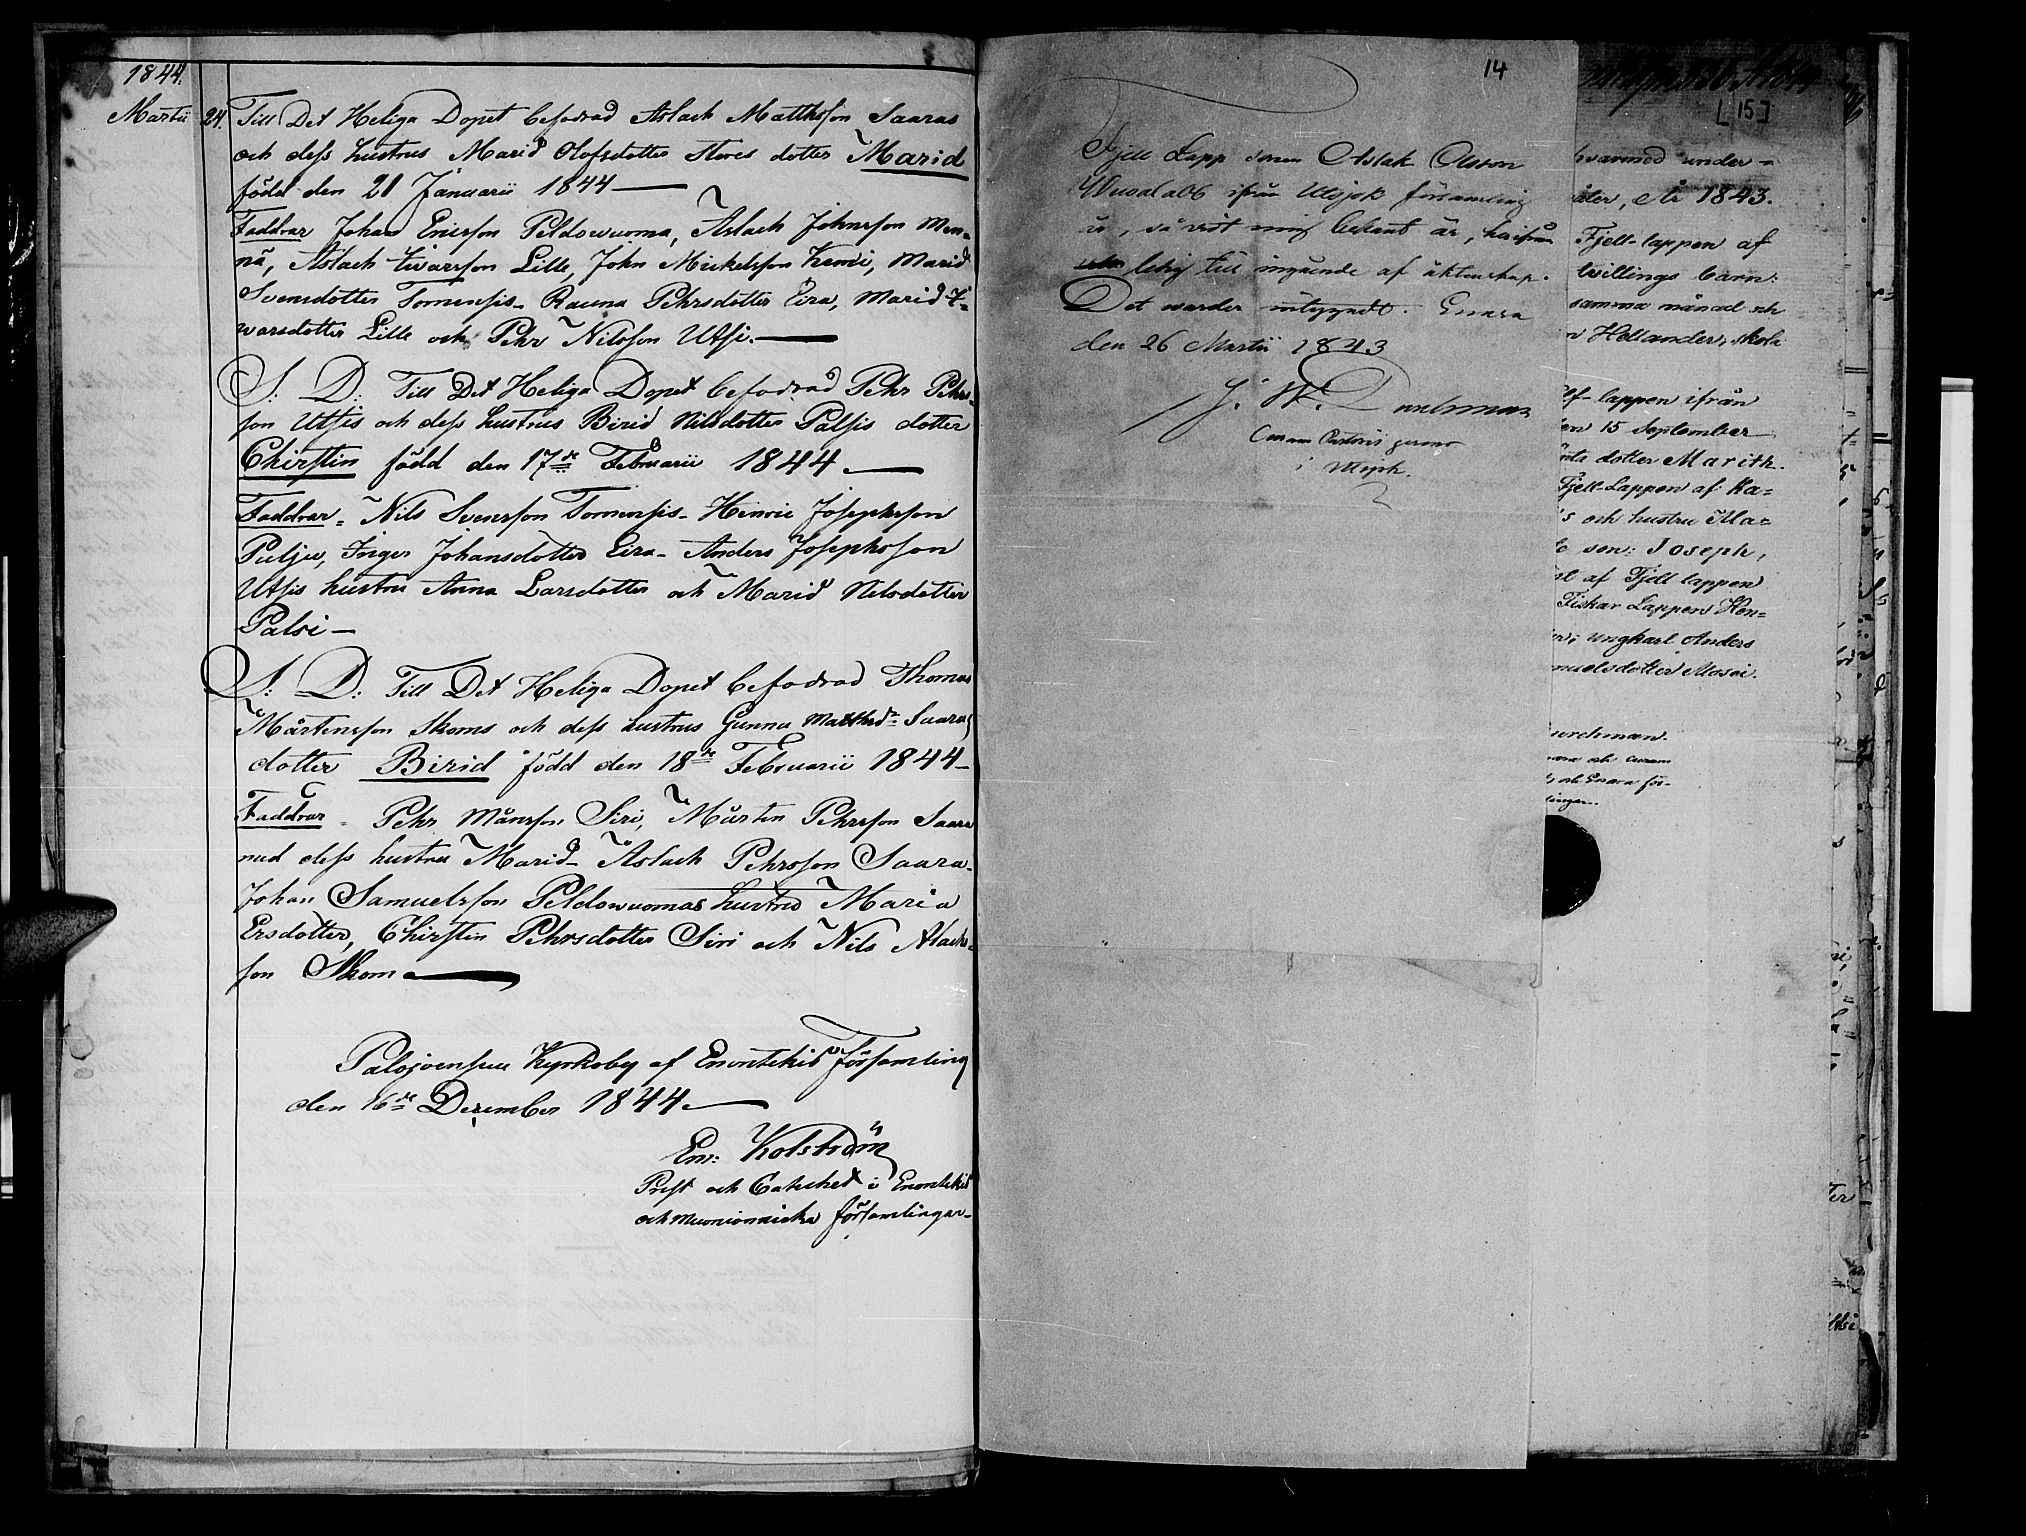 1844.
Martii 24. Till Det Heliga Dopet befodrad Aslach Matthsson Saaras
och dess hustrus Marid Olofsdotter Stores dotter Marid
född den 21 Januarii 1844
Faddrar Johan Ericsson Peldowuoma, Aslach Johnsson Men=
nä, Aslach Iwarsson Lille, John Mickelsson Kemi, Marid
Svensdotter Tornensis- Rauna Pehrsdotter Eira, Marid I=
warsdotter Lille och Pehr Nilsson Utsi.
S: D: Till Det Heliga Dopet befodrad Pehr Pehrs=
son Utsis och dess hustrus Birid Nilsdotter Palsis dotter
Chirstin född den 17de Februarii 1844
Faddrar- Nils Svensson Tornensis- Henric Josephsson
Pulju, Inger Johansdotter Eira- Anders Josephsson
Utsis hustru Anna Larsdotter och Marid Nilsdotter
Palsi
S: D: Till Det Heliga Dopet befodrad Thomas
Mårtensson Skoms och dess hustrus Gunna Matthsdr Saaras
dotter Birid född den 18de Februarii 1844-
Faddrar - Pehr Månsson Siri, Mårten Pehrsson Saara
med dess hustru Marid- Aslach Pehrsson Saara-
Johan Samuelsson Peldowuomas hustru Maria
Ersdotter, Chirstin Pehrsdotter Siri och Nils Aslachs=
son Skom
Palojoensuu Kyrkoby af Enontekis församling
den 16de December 1844
Em: Kolström
Prest och Catechet i Enontekis
och Muonioniska församlingar-
14
Fjell Lapp sonen Aslak Olsson
ifrån Utsjok församling
är, så vist mig bekant är, härifrån
ledig till ingående af äktenskap.
Det warder intygadt. Enara
den 26 Martii 1843
J. W. Durchman
Curam Pastoris gerens
i Utsjok.
[15]
hvarmed under=
åter, År 1843.
Fjell-lappen af
tvillings barn:
samma månad och
n Hellander, skola
lf-lappen ifrån
en 15 September
dotter Marith.
Fjell-Lappen af Ka=
s och hustru Ma=
son: Joseph,
af Fjell lappen
Fiskar Lappen Hen=
ungkarl Anders
muelsdotter Mosai.
urchman.
ara och curam
och Enara för-
lingar.